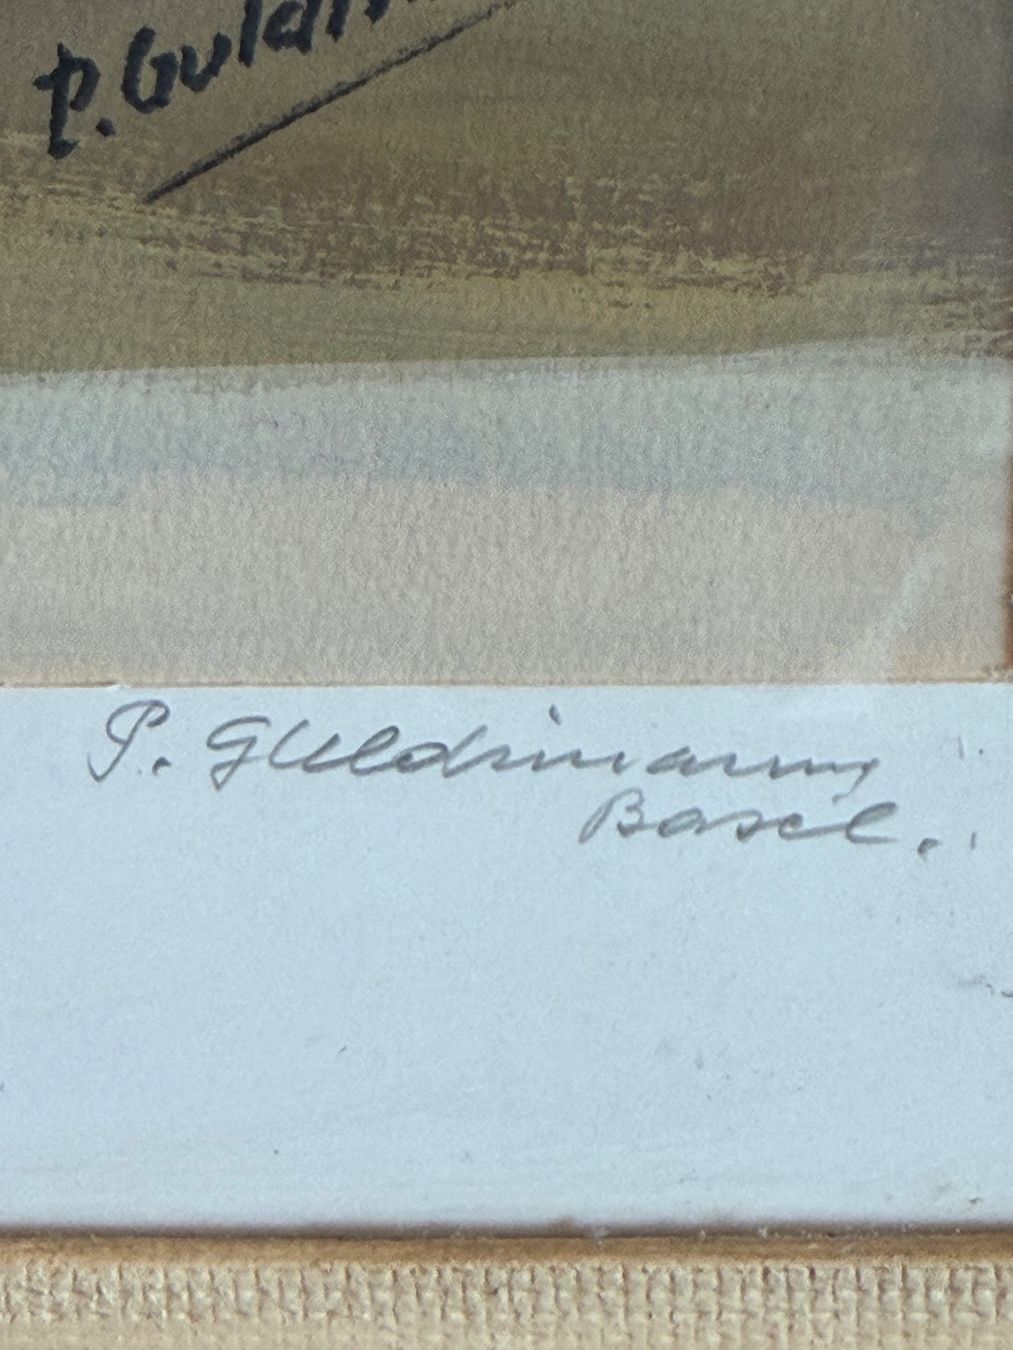 P. Guldim
P. Guldimann
Basel.